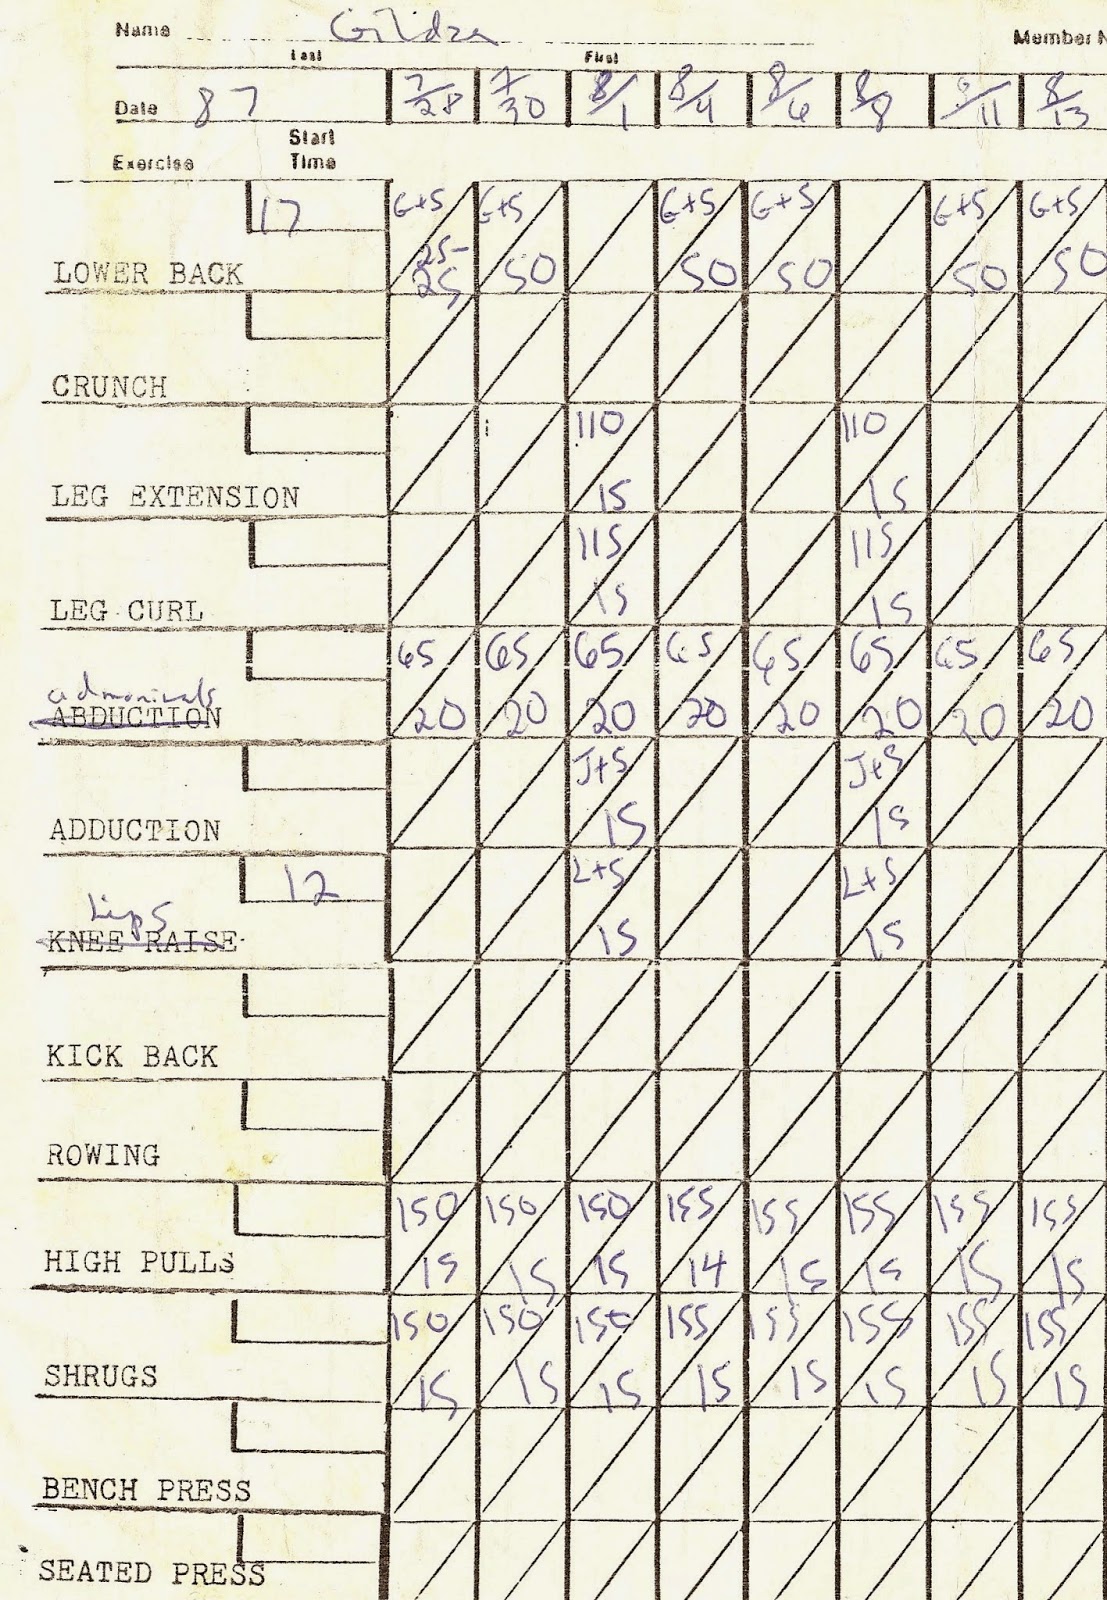 Name Gildza
Last First Member N
Date 87 7/28 7/30 8/1 8/4 8/6 8/8 8/11 8/13
Exercise Start Time
17 G+S G+S G+S G+S G+S G+S
LOWER BACK 25-25 50 50 50 50 50
CRUNCH
110 110
LEG EXTENSION 15 15
115 115
LEG CURL 15 15
65 65 65 65 65 65 65 65
admonivals
ABDUCTION 20 20 20 20 20 20 20 20
J+S J+S
ADDUCTION 15 15
12 L+S L+S
hips
KNEE RAISE 15 15
KICK BACK
ROWING
150 150 150 155 155 155 155 155
HIGH PULLS 15 15 15 14 15 15 15 15
150 150 150 155 155 155 155 155
SHRUGS 15 15 15 15 15 15 15 15
BENCH PRESS
SEATED PRESS